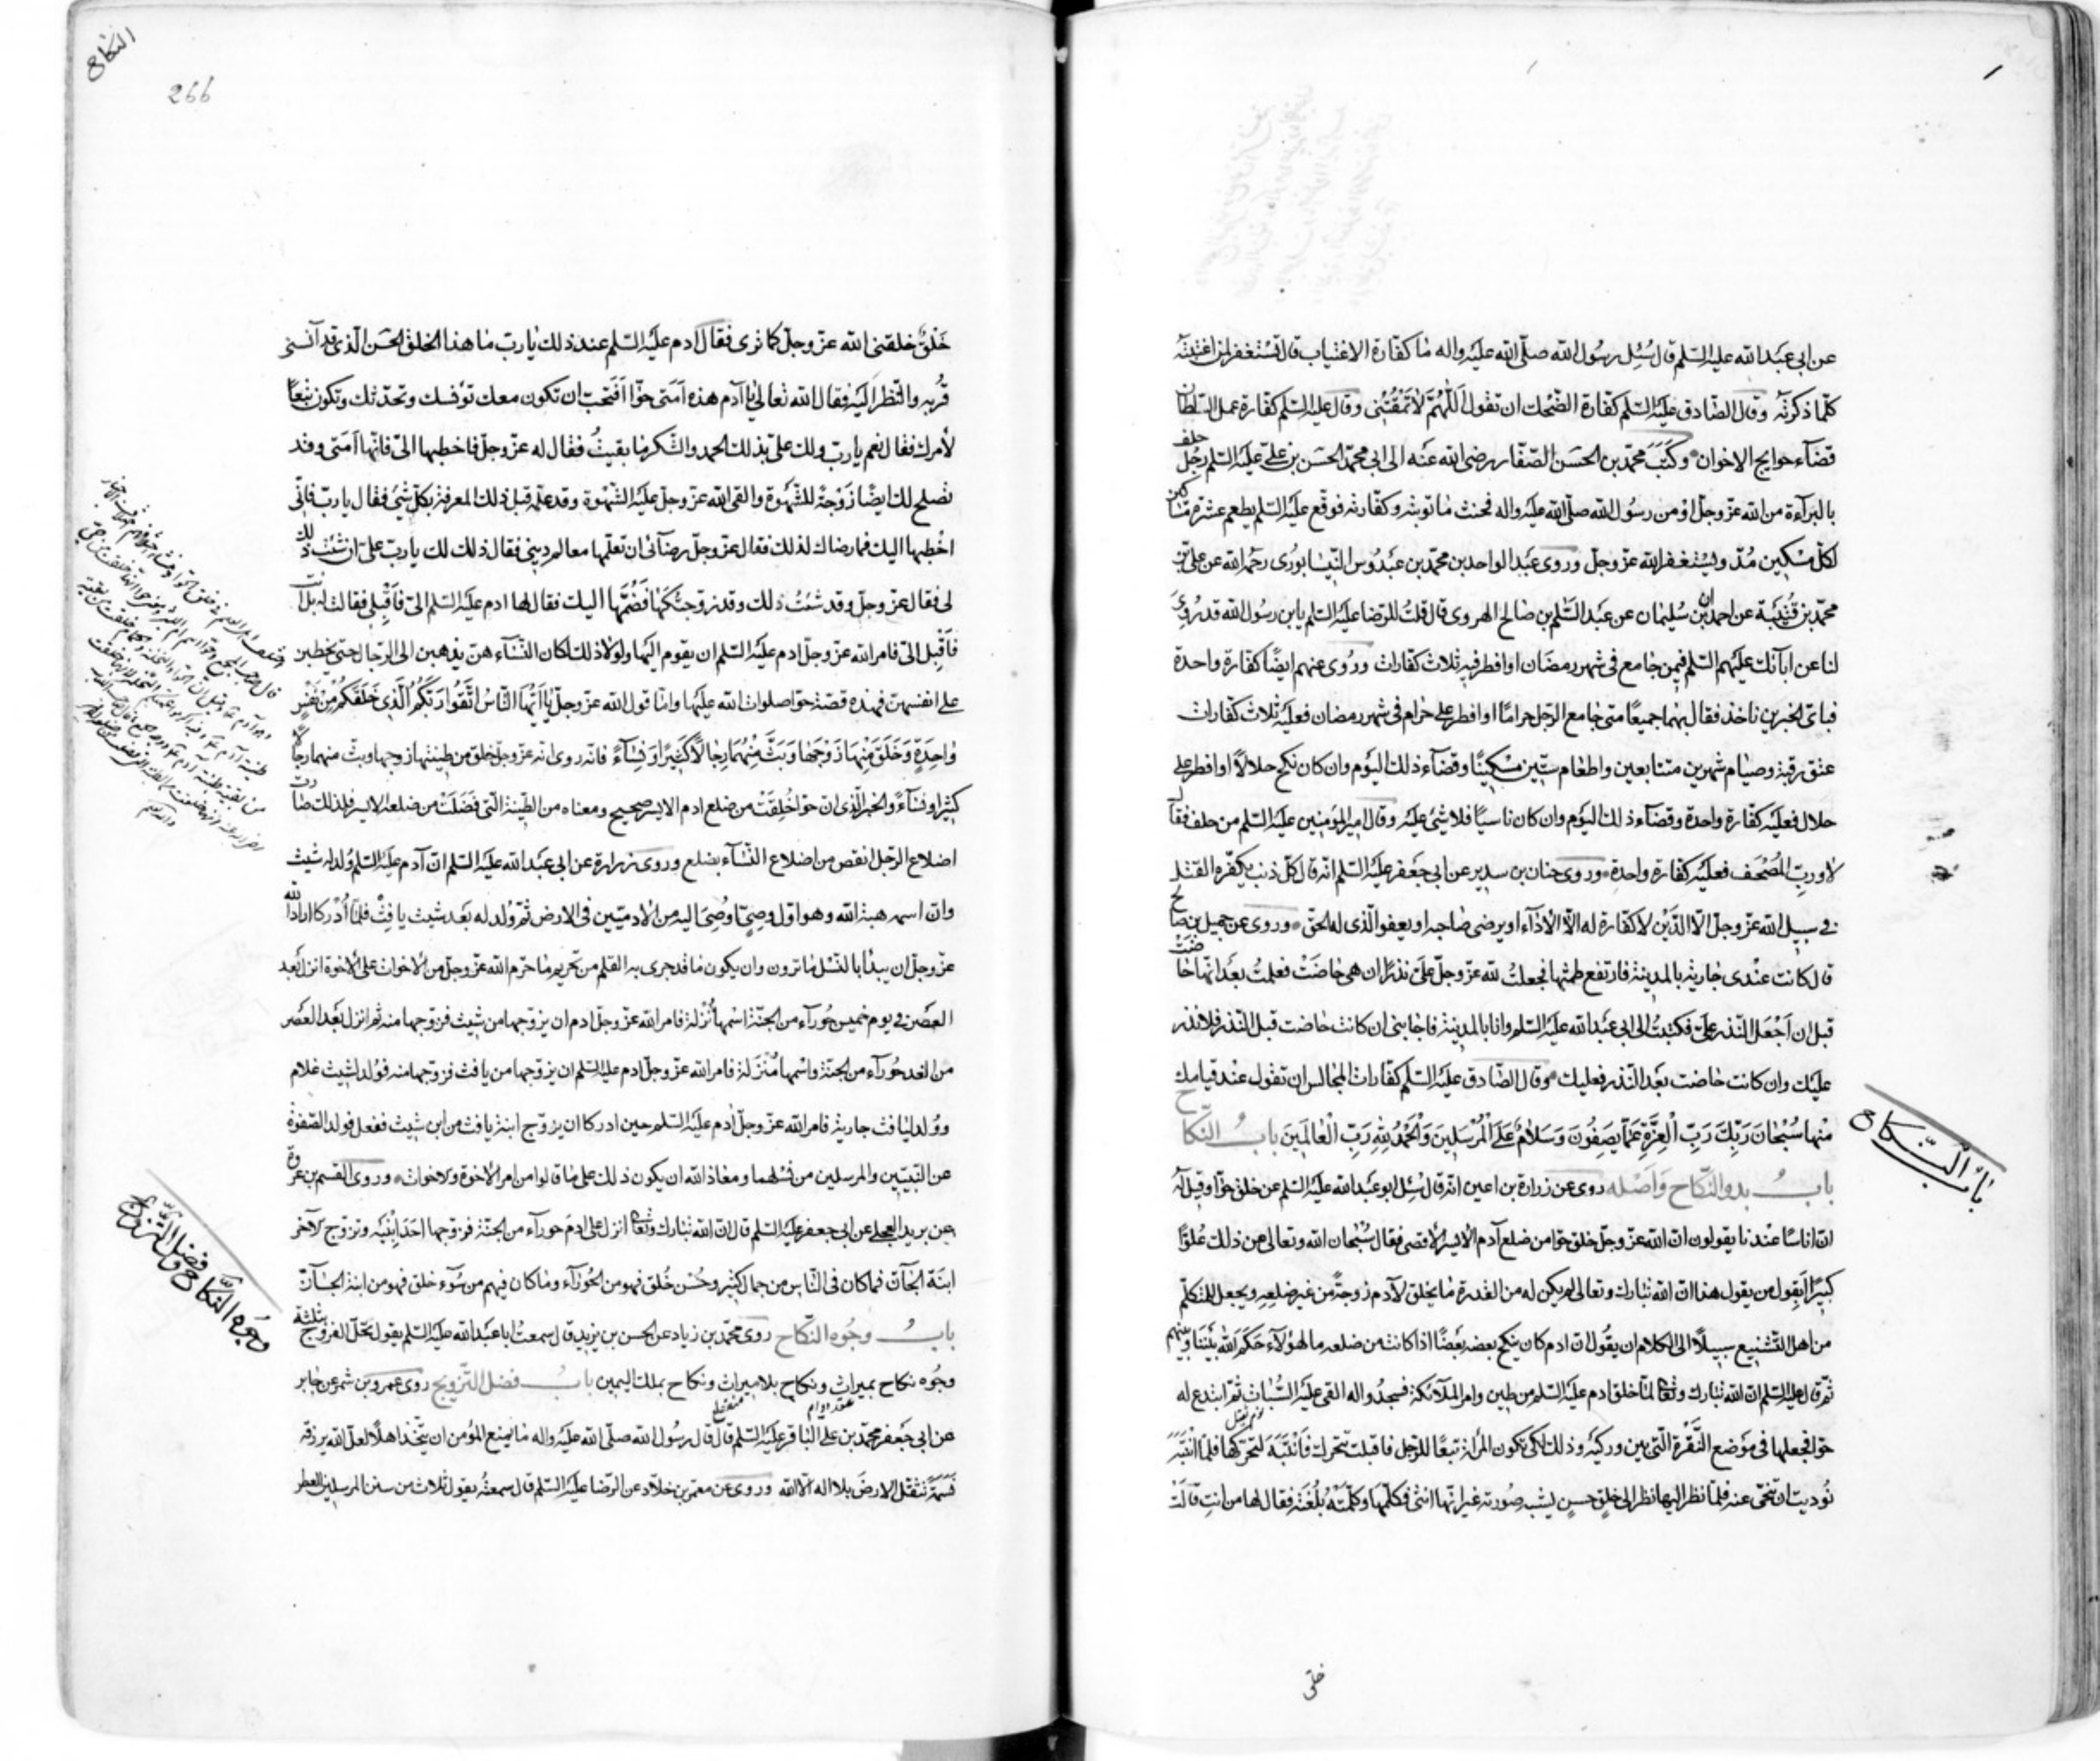 عن ابي عبد الله عليه السلم قال سُئِل رسُول الله صلّى الله عليه واله ما كفارة الاغتياب قال تستغفر لمن اغتبته
كلّما ذكرته وقال الصّادق عليه السلم كفارة الضّحك ان تقول اَللّهُمَّ لا تَمْقُتْنِى وقال عليه السلم كفّارة عمل السّلطان
قضآء حوايج الاخوان وكَتَبَ محمّد بن الحسَن الصّفّار رضى الله عنه الى ابي محمّد الحسَن بن علىّ عليه السّلم رجُل حلف
بالبرآءة من الله عزّ وجلّ اوْ من رسُول الله صلّى الله عليه واله فحنث ما توبته وكفّارته فوقّع عليه السّلم يطعم عشرة مسَاكين
لكلّ مسْكين مُدّ ويستغفر الله عزّ وجلّ وروى عبد الواحد بن محمّد بن عبدُوس النّيسابورى رحمه الله عن علىّ بن
محمّد بن قُتَيْبَة عن احمدان بن سُليمان عن عبد السّلم بن صالح الهروى قال قلتُ للرّضا عليه السّلم يابن رسُول الله قد رُوِىَ
لنا عن ابآئك عليهم السّلم فيمن جامع فى شهر رمضَان اوافطر فيه ثلاث كفارات ورُوى عنهم ايضًا كفارة واحدة
فبائ الخبرين ناخذ فقال بهما جميعًا متى جامع الرّجل حرامًا اوافطر على حرام فى شهر رمضان فعليه ثلاث كفّارات
عتق رقبة وصيام شهرين متتابعين واطعام ستّين مسْكينًا وقضآء ذلك اليَوْم وان كان نكح حلالًا اوافطر على
حلال فعليه كفّارة واحدة وقضآء ذلك اليَوْم وان كان ناسيًا فلا شئ عليه وقال امير المؤمنين عليه السّلم من حلف فقال
لا وربّ المُصْحَف فعليه كفّارة واحدة وروى حنان بن سدير عن ابى جَعْفر عليه السّلم انّه قال كلّ ذنب يكفّره القتل
فى سبيل الله عزّ وجلّ الّا الدَّيْن لا كفّارة له الّا الأدَآء اويرضى صَاحبه اويعفو الّذى له الحقّ وروى عن جميل بن صَالح
قال كانت عنْدى جارية بالمدينة فارتفع طمثها فجعلتُ لله عزّ وجلّ علىّ نذرًا ان هى حَاضَتْ فعلمتُ بعد انّها حَاضَتْ
قبل ان اَجْعَل النّذر علىّ فكتبتُ الى ابى عبد الله عليه السّلم وانا بالمدينة فاجابنى ان كانت حاضت قبل النّذر فلا نذر
عليك وان كانت حاضت بعد النّذر فعليك وقال الصّادق عليه السّلم كفّارات المجالس ان تقول عند قيامك
منها سُبْحَانَ رَبِّكَ رَبِّ الْعِزَّةِ عَمَّا يَصِفُونَ وَسَلامٌ عَلَى الْمُرْسَلِينَ وَالْحَمْدُ لِلّهِ رَبِّ الْعالَمِينَ بابُ النّكاح
باب النّكاح
بابُ بدو النّكاح وَاَصله روى عن زرارة بن اعين انّه قال سُئل ابو عبد الله عليه السّلم عن خلق حوّا وقيل له
انّ اناسًا عنْدنا يقولون انّ الله عزّ وجلّ خلق حوّا من ضلع آدم الأيسر الأقصى فقال سُبْحان الله وتعالى عن ذلك عُلوًّا
كبيرًا اَيقول من يقول هذا انّ الله تبارك وتعالى لم يكن له من القدرة ما يخلق لآدم زوجةً من غير ضلعه ويجعل للمتكلّم
من اهل التّشنيع سبيلًا الى الكلام ان يقُول انّ ادم كان ينكح بعضه بعضًا اذا كانت من ضلعه ما لهؤلآء حَكَمَ الله بيننا وبينهم
ثمّ قال عليه السّلم انّ الله تبارك وتعالى لمّا خلق ادم عليه السّلم من طين وامر الملآئكة فسجدُوا له القى عليه السُّبات ثمّ ابتدع له
حوّا فجعلها فى موْضع النُّقْرة الّتى بين وركيْه وذلك لكى تكون المرأة تبعًا للرّجل فاقبلت تتحرك فَانْتَبَهَ لتحرّكها فلمّا انْتَبَهَ
نُوديت ان تنحّى عنه فلمّا نظر اليها نظر الى خلْقٍ حسنٍ يشبه صُورته غير انّها انثى فكلّمها وكلّمَتْهُ بلُغته فقال لها من انتِ قالت
خلق
النكاح
266
خَلْقٌ خلقنى الله عزّ وجلّ كما ترى فقال آدم عليه السّلم عند ذلك يارب ما هذا الخلق الحسَن الّذى قد آنسنى
قُربه والنّظر اليه فقال الله تعالى يا آدم هذه اَمَتى حوّا اَفتحبّ ان تكون معك تؤنسك وتحدّثك وتكون تبعًا
لأمرك فقال نعم يارب ولك علىّ بذلك الحمد والشّكر ما بقيتُ فقال له عزّ وجلّ فاخطبها الىّ فانّها اَمَتى وقد
تصلح لك ايضًا زَوْجةً للشّهْوة والقى الله عزّ وجلّ عليه الشّهْوة وقد علّمه قبل ذلك المعرفة بكلّ شئ فقال ياربّ فانّى
اخْطبها اليك فما رضاك لذلك فقال عزّ وجلّ رضآئى ان تعلّمها معالم دينى فقال ذلك لك ياربّ علىّ ان شئت ذلك
لى فقال عزّ وجلّ وقد شئتُ ذلك وقد زوّجتُكَها فضُمَّها اليك فقال لها ادم عليه السّلم الىّ فاَقْبِلى فقالت له بل انت
فاَقْبِل الىّ فامر الله عزّ وجلّ ادم عليه السّلم ان يقوم اليها ولولا ذلك لكان النّسآء هنّ يذهبن الى الرّجال حتى يخطبن
على انفسهنّ فهذه قصّة حوّا صلوات الله عليها وامّا قول الله عزّ وجلّ يا اَيُّهَا النّاسُ اتَّقُوا رَبَّكُمُ الَّذِى خَلَقَكُمْ مِنْ نَفْسٍ
واحِدَةٍ وَخَلَقَ مِنْها زَوْجَها وَبَثَّ مِنْهُما رِجالًا كَثِيرًا وَنِسآءً فانّه روى انّه عزّ وجلّ خلق من طينتها زوجها وبثّ منهما رجالًا
كثيرًا ونسآءً والخبر الّذى انّ حوّا خُلِقَتْ من ضلع ادم الايسر صحيح ومعناه من الطّينة الّتى فَضَلَتْ من ضلعه الايسر فلذلك صارت
اضلاع الرّجل انقص من اضلاع النّسآء بضلع وروى زرارة عن ابى عبد الله عليه السّلم انّ آدم عليه السّلم وُلد له شيث
وانّ اسمه هبة الله وهو اوّل وصىٍّ اُوصِىَ اليه من الادميّين فى الارض ثمّ وُلد له بعد شيث يافث فلمّا اَدْركا اراد الله
عزّ وجلّ ان يبدأ بالنّسْل ما ترون وان يكون ما قد جرى به القلم من تحريم ما حرّم الله عزّ وجلّ من الاخوات على الاخوة انزل بعد
العصر فى يوم خميس حُورآء من الجنّة اسْمها نُزْلة فامر الله عزّ وجلّ ادم ان يزوّجها من شيث فزوّجها منه ثمّ انزل بعد العصر
من الغد حُورآء من الجنّة واسْمها مُنْزَلة فامر الله عزّ وجلّ ادم عليه السّلم ان يزوّجها من يافث فزوّجها منه فوُلد لشيث غلام
ووُلد ليافث جارية فامر الله عزّ وجلّ ادم عليه السّلم حين ادركا ان يزوّج ابنة يافث من ابن شيث ففعل فولد الصّفوة
من النّبيّين والمرسلين من نسْلهما ومعاذ الله ان يكون ذلك على ما قالوا من امر الاخوة والاخوات وروى القسم بن عروة
عن بريد العجلى عن ابى جعفر عليه السّلم قال انّ الله تبارك وتعالى انزل على ادم حورآء من الجنّة فزوّجها احَدَ ابْنَيْه وتزوّج الآخر
ابنَة الجآنّ فما كان فى النّاس من جمال كثير وحُسْن خُلق فهو من الحُورآء وما كان فيهم من سُوء خلق فهو من ابنة الجآنّ
بابُ وجُوه النّكاح روى محمّد بن زياد عن الحسن بن يزيد قال سمعتُ ابا عبد الله عليه السّلم يقول تحلّ الفروج بثلثة
وجُوه نكاح بميراث ونكاح بلا ميراث ونكاح بملك اليمين بابُ فضل التّزويج روى عمرو بن شمر عن جابر
عقد دوام منقطع
عن ابى جَعْفر محمّد بن على الباقر عليه السّلم قال قال رسُول الله صلّى الله عليه واله ما يمنع المؤمن ان يتّخذ اهلًا لعلّ الله يرزقه
نَسَمَةً تثقل الارضَ بلا اله الّا الله وروى عن معمّر بن خلّاد عن الرّضا عليه السّلم قال سمعتُه يقول ثلاث من سنن المرسلين العطر
وجوه النّكاح وفضل التّزويج